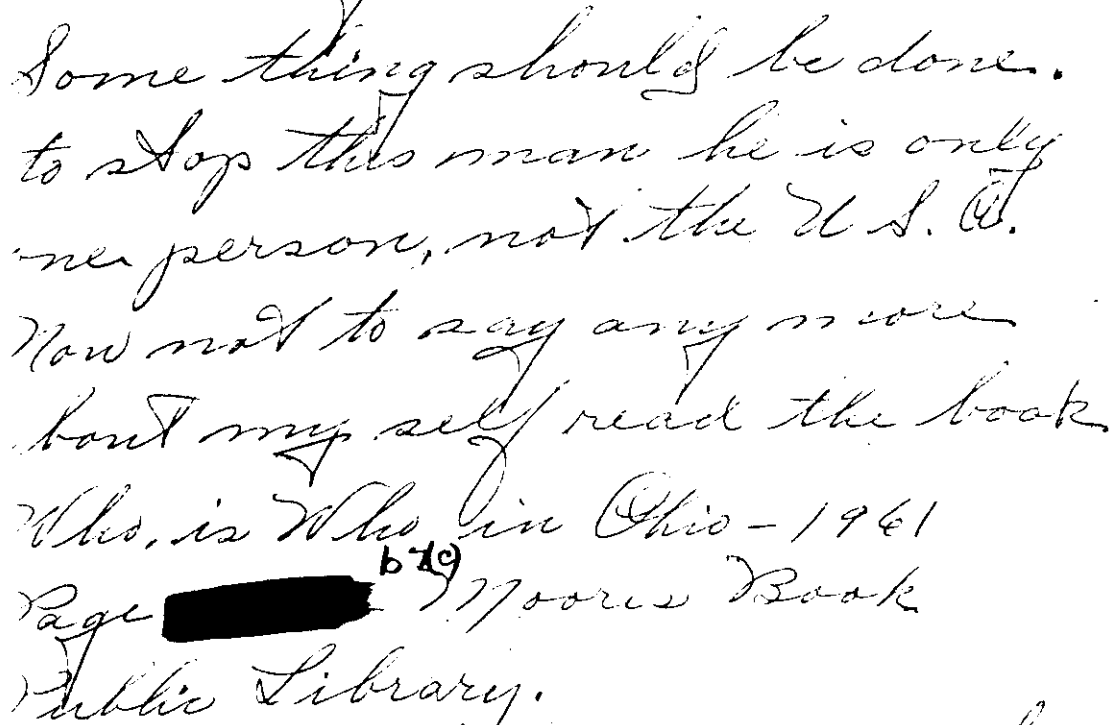 Some thing should be done.
to stop this man he is only
ne person, not the U S. A.
Now not to say any more
bout my self read the book
Who, is Who in Ohio - 1961
b7c
Page Moores Book
Public Library.